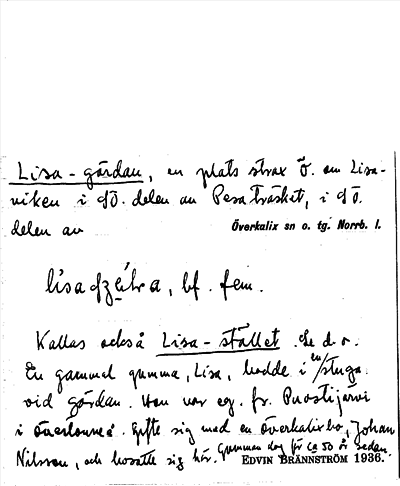 Lisa-gärdan, en plats strax Ö. om Lisa-
viken i sö. delen av Pesaträsket, i sö.
delen av
Överkalix sn o. tg. Norrb. l.
bf. fem.
Kallas också Lisa-stället. Se d. o.
En gammal gumma, Lisa, bodde i en stuga
vid gärdan. Hon var eg. fr. Puostijärvi
i Övertorneå. Gifte sig med en överkalixbo, Johan
Nilsson, och bosatte sig här. Gumman dog för ca 50 år sedan.
EDVIN BRÄNNSTRÖM 1936.